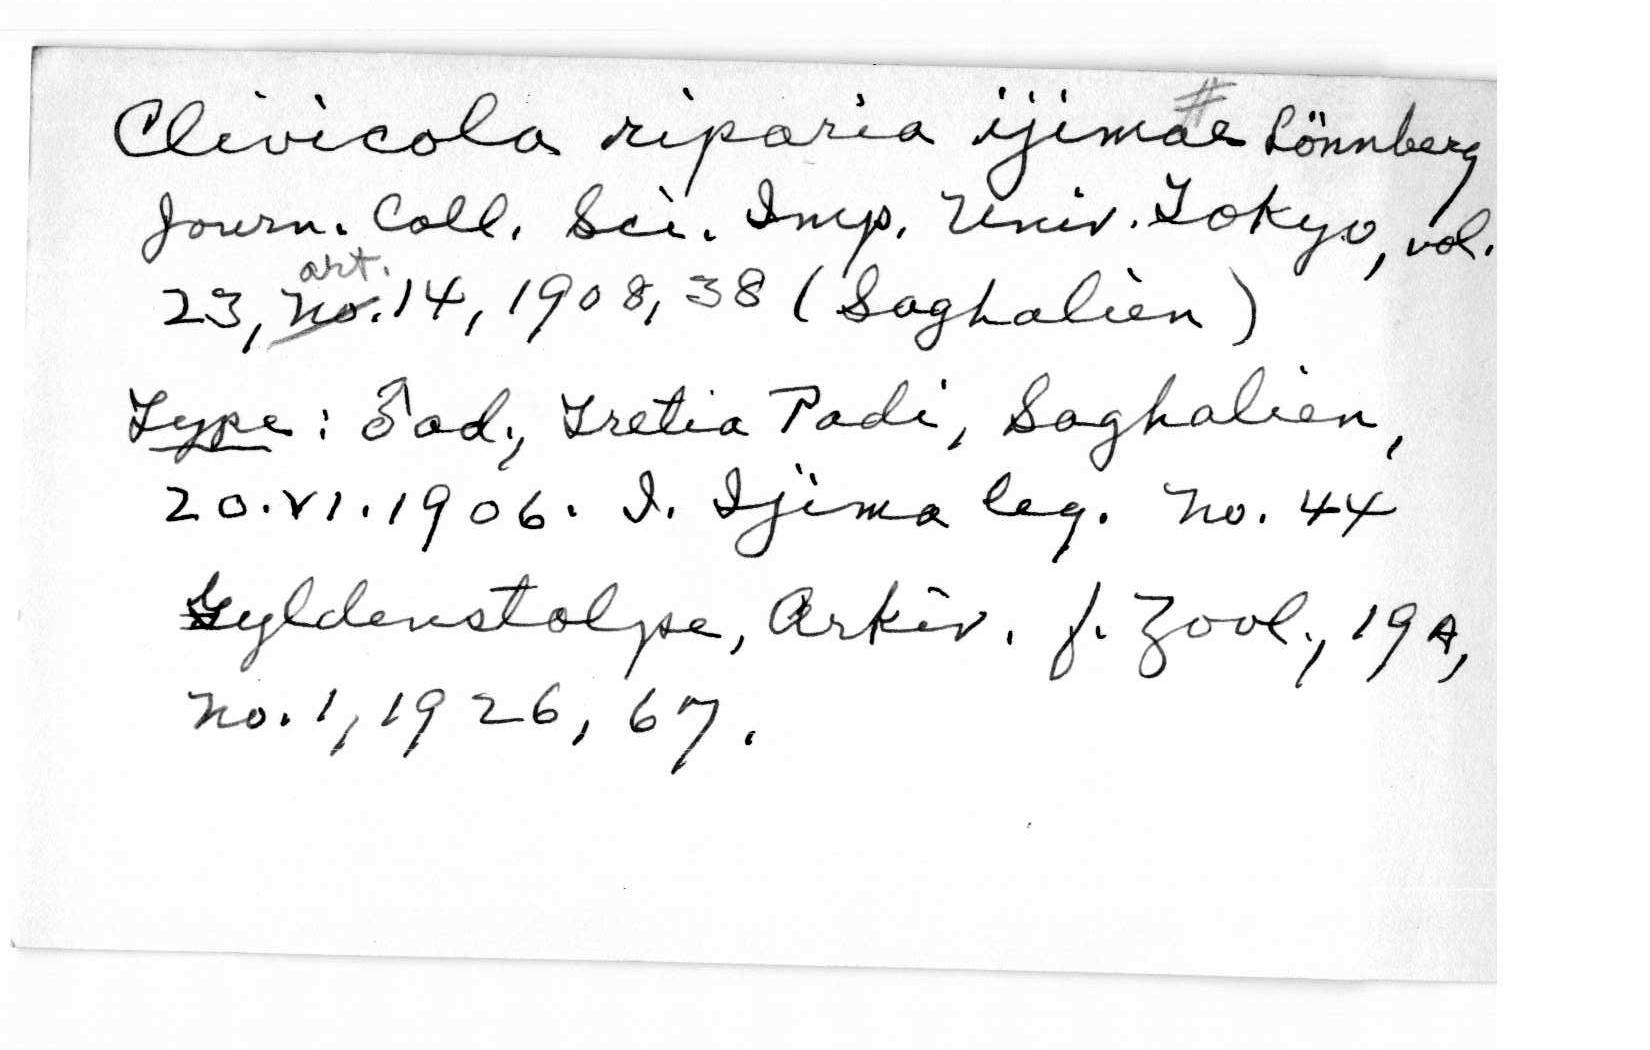 Clivicola riparia ijimae # Lönnberg
Journ. Coll. Sci. Imp. Univ. Tokyo, vol.
art.
23, no. 14, 1908, 38 (Saghalien)
Type: ♂ ad., Tretia Padi, Saghalien,
20.VI.1906. I. Ijima leg. no. 44
Gyldenstolpe, Arkiv. f. Zool., 19A,
no. 1, 1926, 67.